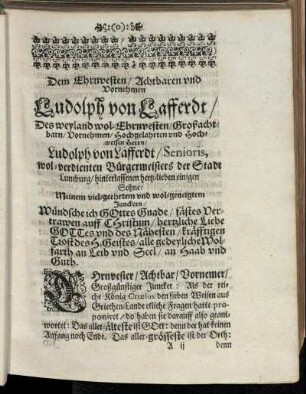 :(o):
Dem Ehrnvesten / Achtbaren vnd
Vornehmen
Ludolph von Lafferdt /
Des weyland wol-Ehrnvesten / Großacht-
barn / Vornehmen / Hochgelahrten vnd Hoch-
weisen Herrn /
Ludolph von Lafferdt / Senioris,
wol-verdienten Bürgermeisters der Stadt
Lüneburg / hinterlassenen hertz-lieben einigen
Sohne /
Meinem viel-geehrtem vnd wol-geneigtem
Junckern /
Wündsche ich GOttes Gnade / fästes Ver-
trawen auff Christum / hertzliche Liebe
GOTTes vnd des Nähesten / kräfftigen
Trost des H. Geistes / alle gedeyliche Wol-
farth an Leib vnd Seel / an Haab vnd
Guth.
EHrnvester / Achtbar / Vornemer /
Großgünstiger Juncker: Als der rei-
che König Croesus den sieben Weisen auß
Griechen-Lande etliche Fragen hatte pro-
poniret / do haben sie darauff also geant-
wortet: Das aller-älteste ist GOtt: denn der hat keinen
Anfang noch Ende. Das aller-grösseste ist der Orth:
A ij denn